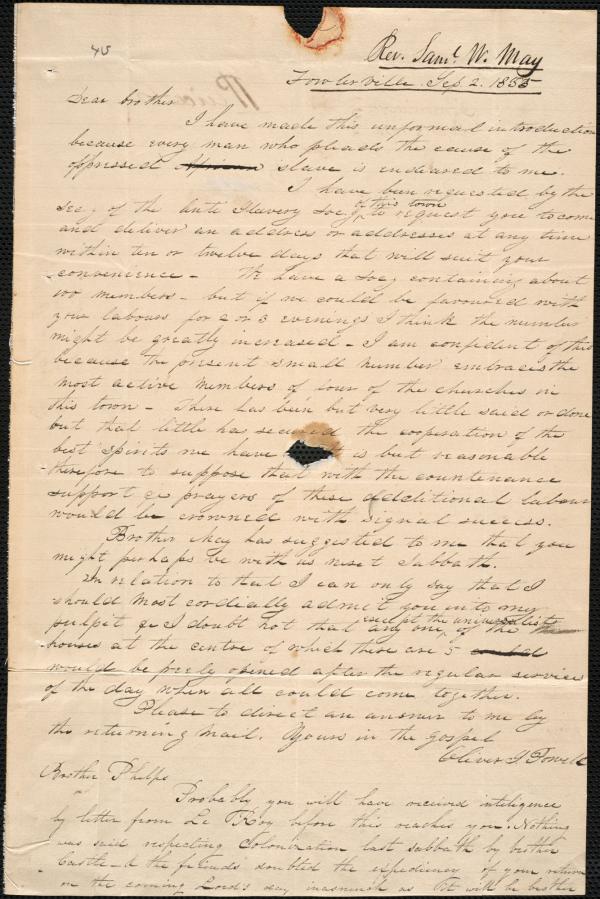 45
Rev. Saml. W. May
Fowlerville Sep. 2. 1835
Dear brother
I have made this unformal introduction
because every man who pleads the cause of the
oppressed African slave is endeared to me.
I have been requested by the
Secy of the Anti Slavery Socy of this town to request you to come
and deliver an address or addresses at any time
within ten or twelve days that will suit your
convenience - We have a Socy containing about
100 members - but if we could be favoured with
your labours for 2 or 3 evenings I think the number
might be greatly increased - I am confident of this
because the present small number embraces the
most active members of four of the churches in
this town - There has been but very little said or done
but that little has secured the cooperation of the
best spirits we have is but reasonable
therefore to suppose that with the countenance
support & prayers of these additional labours
would be crowned with signal success.
Brother May has suggested to me that you
might perhaps be with us next Sabbath.
In relation to that I can only say that I
should most cordially admit you into my
pulpit & I doubt not that any one except the universalists of the
houses at the centre of which there are 5
would be freely opened after the regular service
of the day when all could come together.
Please to direct an answer to me by
the returning mail. Yours in the gospel
Oliver S Powell
Brother Phelps
Probably you will have received inteligence
by letter from Le Roy before this reaches you. Nothing
was said respecting Colonization last sabbath by brother
Castle & the friends doubted the expediency of your return
on the coming Lord's day inasmuch as it will be brother